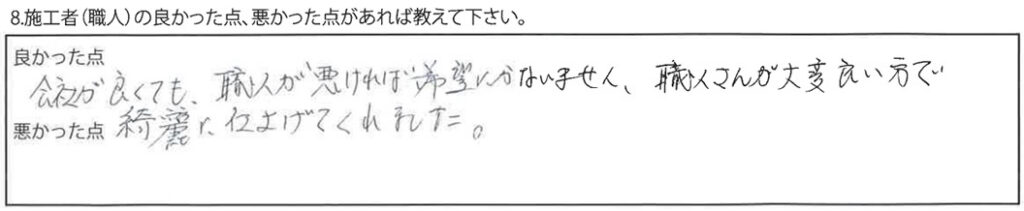 8.施工者（職人）の良かった点、悪かった点があれば教えて下さい。
良かった点
会社が良くても、職人が悪ければ希望にかないません、職人さんが大変良い方で
悪かった点 綺麗に仕上げてくれました。